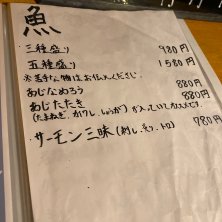 魚
三種盛り 980円
五種盛り 1580円
※苦手な物はお伝えください。
あじなめろう 880円
あじたたき 880円
(たまねぎ、カイワレ、しょうが)が入っています。
・サーモン三昧(刺し、炙り、トロ) 780円